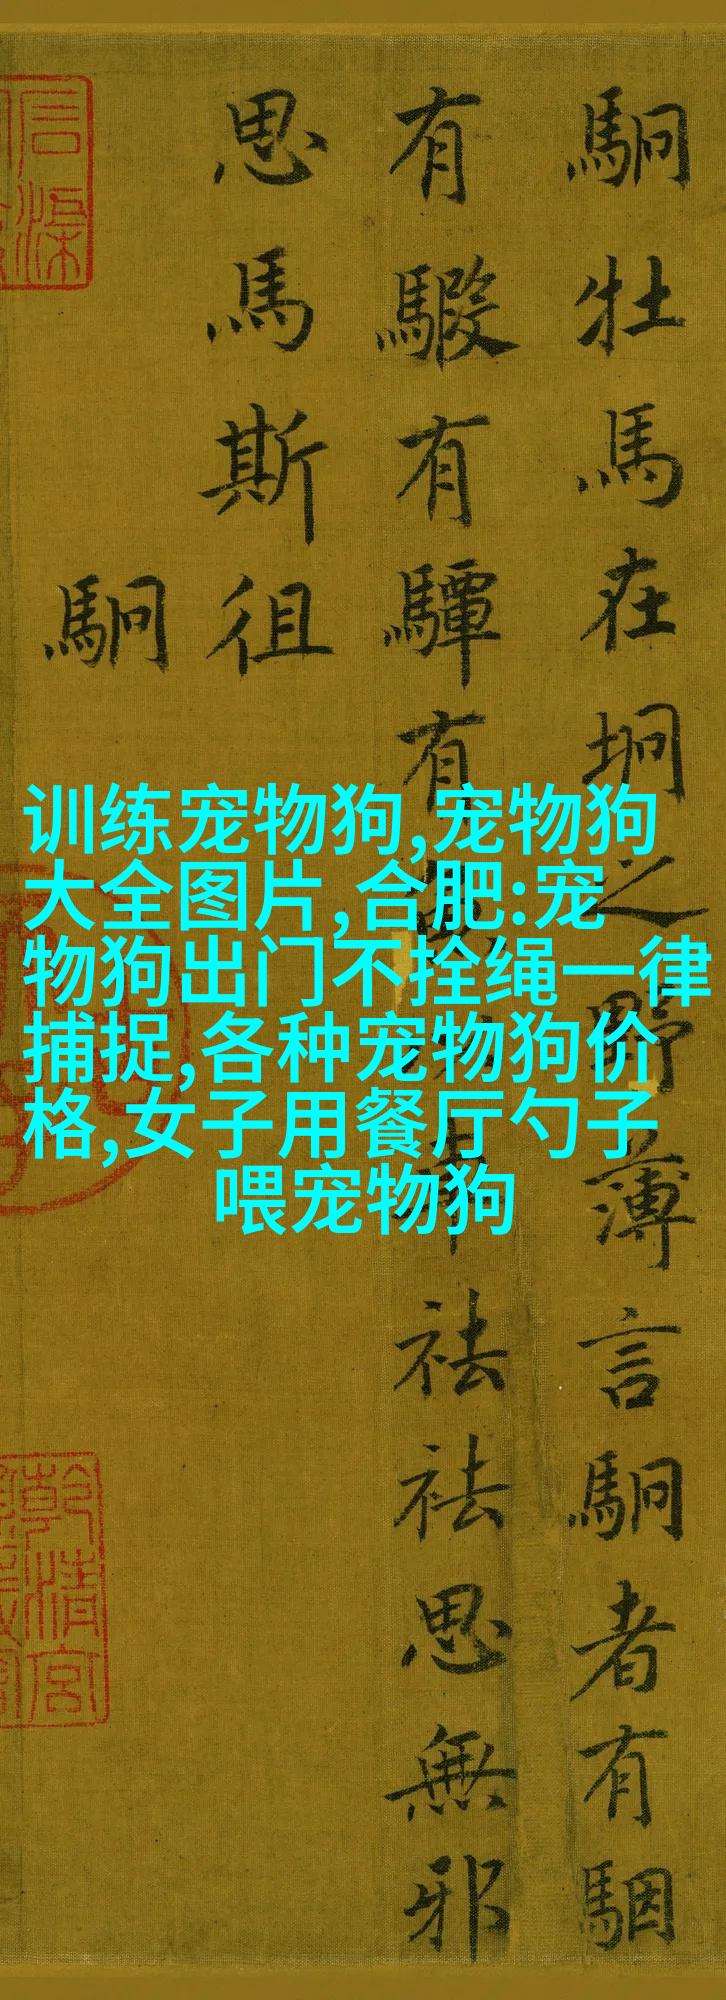 駉牡馬在坰之野薄言駉者有駰
有騢有驔有車祛祛思無邪
思馬斯徂
駉
训练宠物狗,宠物狗
大全图片,合肥:宠
物狗出门不拴绳一律
捕捉,各种宠物狗价
格,女子用餐厅勺子
喂宠物狗
乾清宮